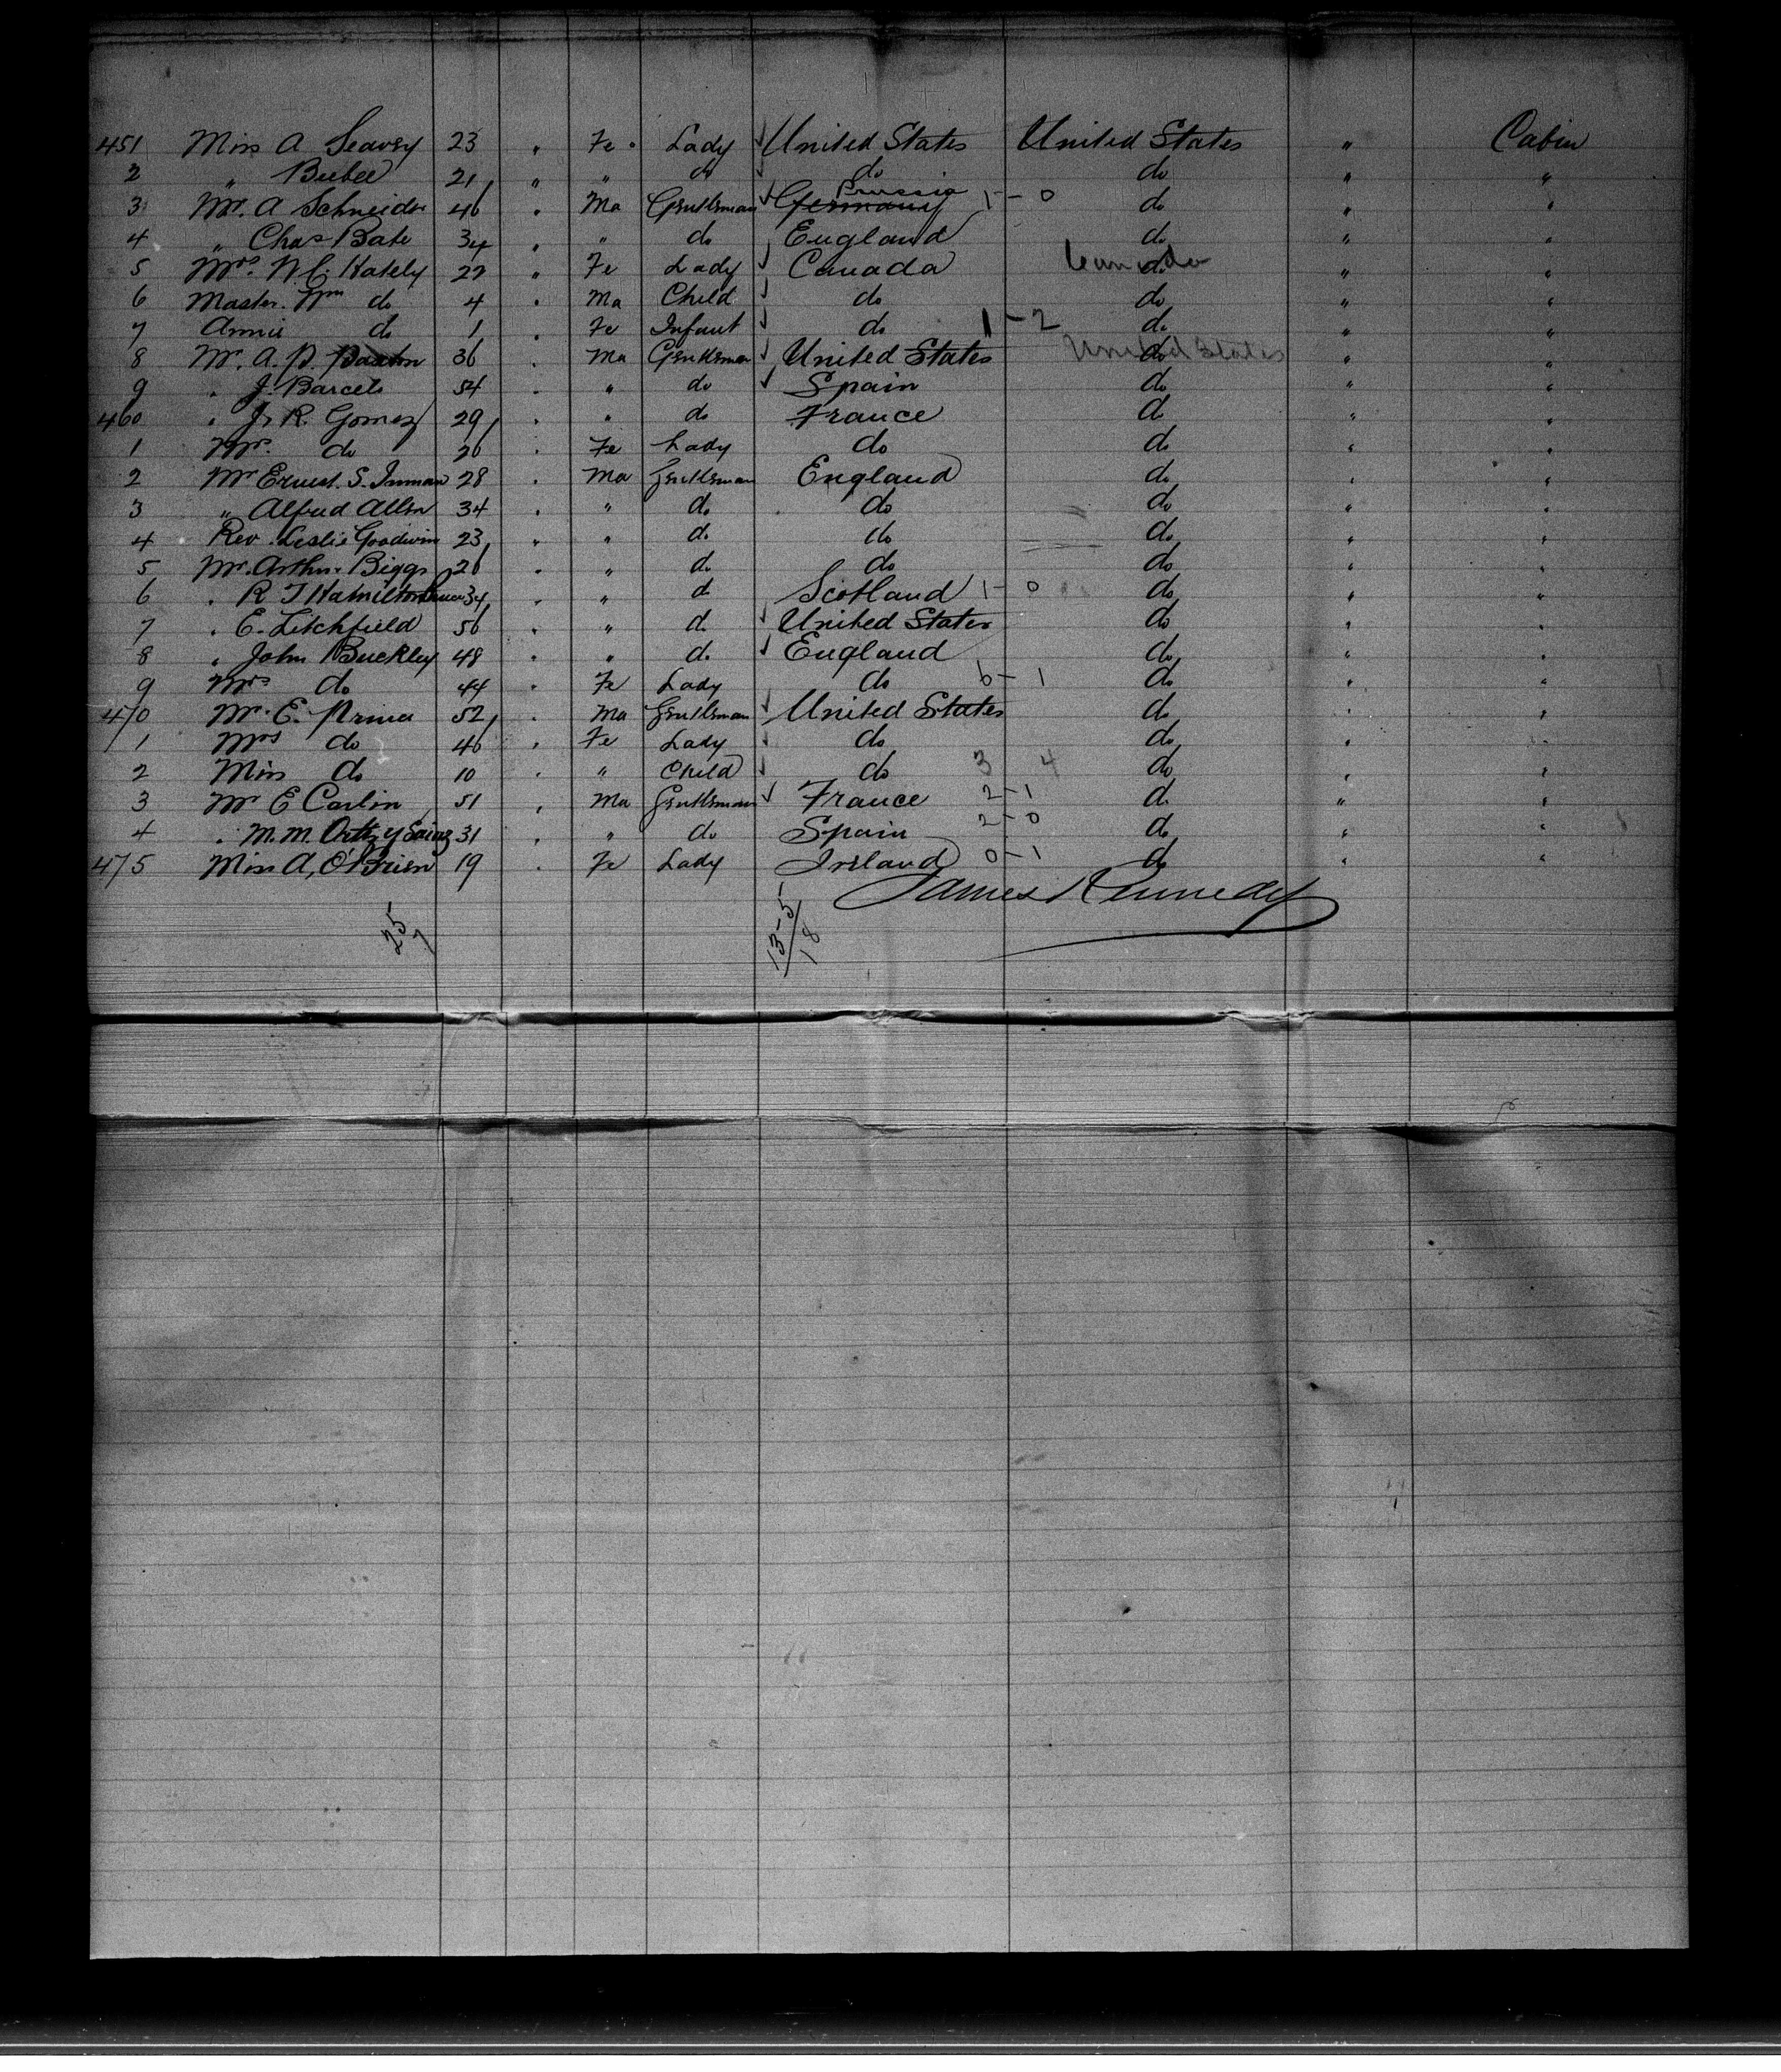 451 Miss A Seavey 23 " Fe. Lady ✓ United States United States " Cabin
2 " Beebee 21 " " do ✓ do do " "
3 Mr. A Schneider 46 " Ma Gentleman ✓ Germany Prussia 1-0 do " "
4 " Chas Bate 34 " " do ✓ England do " "
5 Mrs. W. C. Hately 22 " Fe Lady ✓ Canada do Canada " "
6 Master. Wm do 4 " Ma Child ✓ do do " "
7 Annie do 1 " Fe Infant ✓ do 1-2 do " "
8 Mr. A. P. 36 " Ma Gentleman ✓ United States do United States " "
9 " J. Barcels 54 " " do ✓ Spain do " "
460 " J. R. Gomez 29 " " do France do " "
1 Mrs. do 26 " Fe Lady do do " "
2 Mr Ernest. S. Inman 28 " Ma Gentleman England do " "
3 " Alfred Allen 34 " " do do do " "
4 Rev. Leslie Goodwin 23 " " do do do " "
5 Mr. Arthur Biggs 26 " " do do do " "
6 " R T Hamilton Bruce 34 " " do Scotland 1-0 do " "
7 " E. Litchfield 56 " " do ✓ United States do " "
8 " John Buckley 48 " " do ✓ England do " "
9 Mrs do 44 " Fe Lady do 6-1 do " "
470 Mr. E. 52 " Ma Gentleman ✓ United States do " "
1 Mrs do 46 " Fe Lady ✓ do do " "
2 Miss do 10 " " Child ✓ do 3 4 do " "
3 Mr E Carlin 51 " Ma Gentleman ✓ France 2-1 do " "
4 " M. M. Ortiz y Sainz 31 " " do Spain 2-0 do " "
475 Miss A, O'Brien 19 " Fe Lady Ireland 0-1 do " "
James Kennedy
25
7
13-5
18